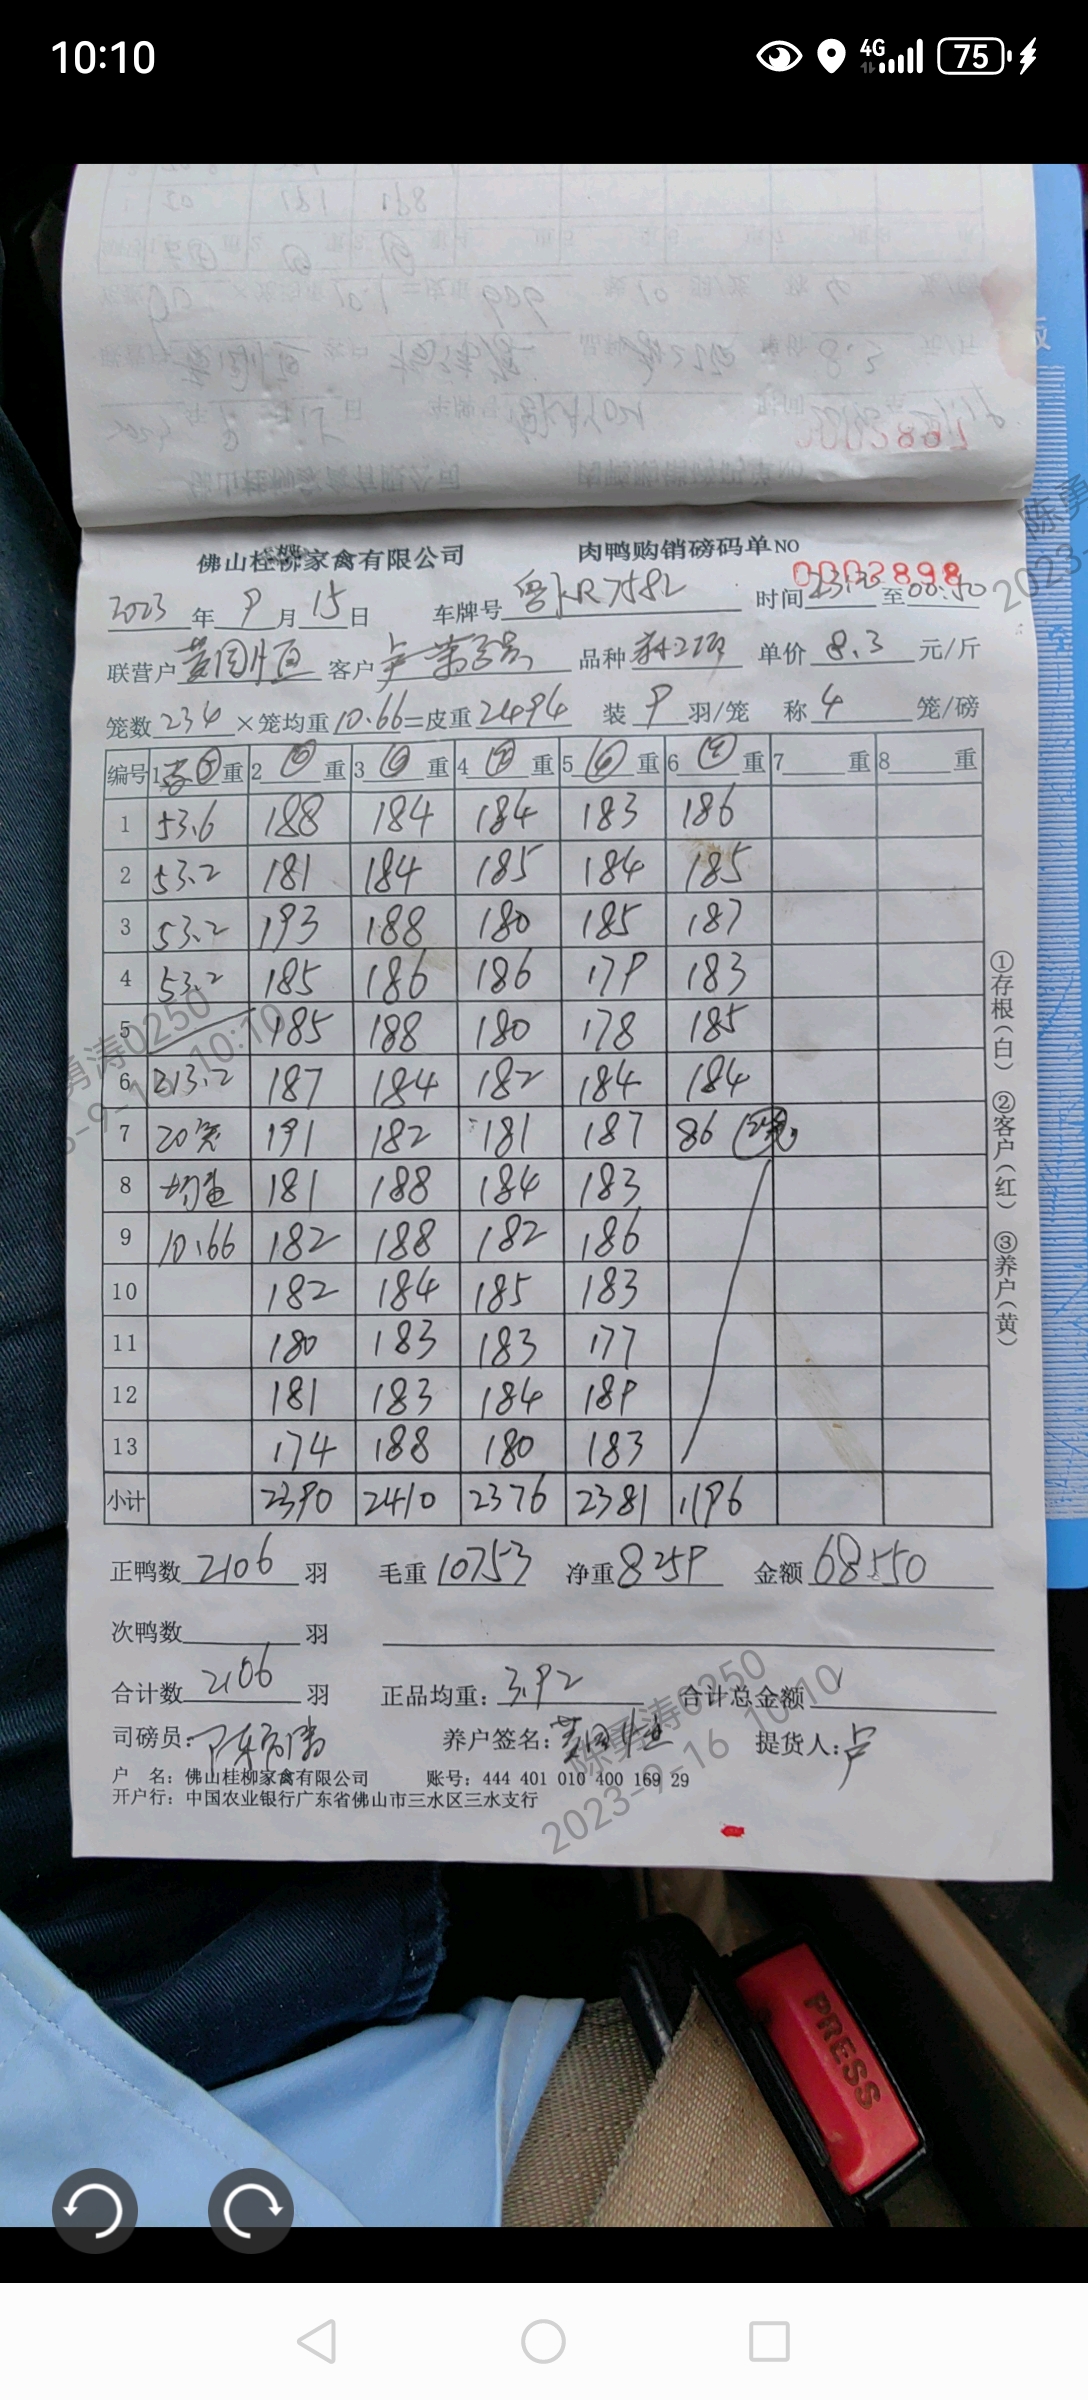 10:10
4G 75
佛山桂柳家禽有限公司 肉鸭购销磅码单NO 0002898
2023年9月15日 车牌号 粤KR7582 时间 至00:50
联营户 客户 品种 单价8.3元/斤
笼数234×笼均重10.66=皮重2494 装9羽/笼 称4笼/磅
编号 1 重 2 重 3 重 4 重 5 重 6 重 7 重 8 重
1 53.6 188 184 184 183 186
2 53.2 181 184 185 184 185
3 53.2 193 188 180 185 187
4 53.2 185 186 186 179 183
5 185 188 180 178 185
6 213.2 187 184 182 184 184
7 20笼 191 182 181 187 86
8 均重 181 188 184 183
9 10.66 182 188 182 186
10 182 184 185 183
11 180 183 183 177
12 181 183 184 189
13 174 188 180 183
小计 2390 2410 2376 2381 1196
正鸭数2106羽 毛重10753 净重8259 金额68550
次鸭数 羽
合计数2106羽 正品均重:3.92 合计总金额
司磅员: 养户签名: 提货人:卢
户 名:佛山桂柳家禽有限公司 账号:444 401 010 400 169 29
开户行:中国农业银行广东省佛山市三水区三水支行
①存根(白) ②客户(红) ③养户(黄)
勇涛0250
-9-16 10:10
陈勇涛0250
2023-9-16 10:10
陈勇
2023-
PRESS